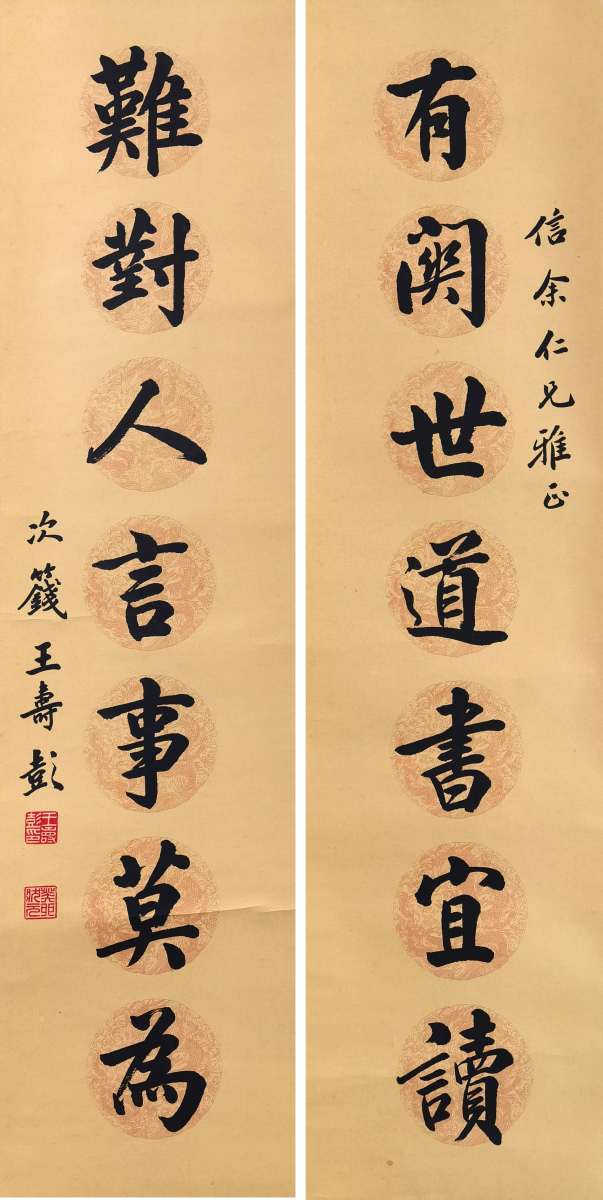 信余仁兄雅正
有關世道書宜讀
難對人言事莫為
次籛王壽彭
王壽彭印
癸卯狀元